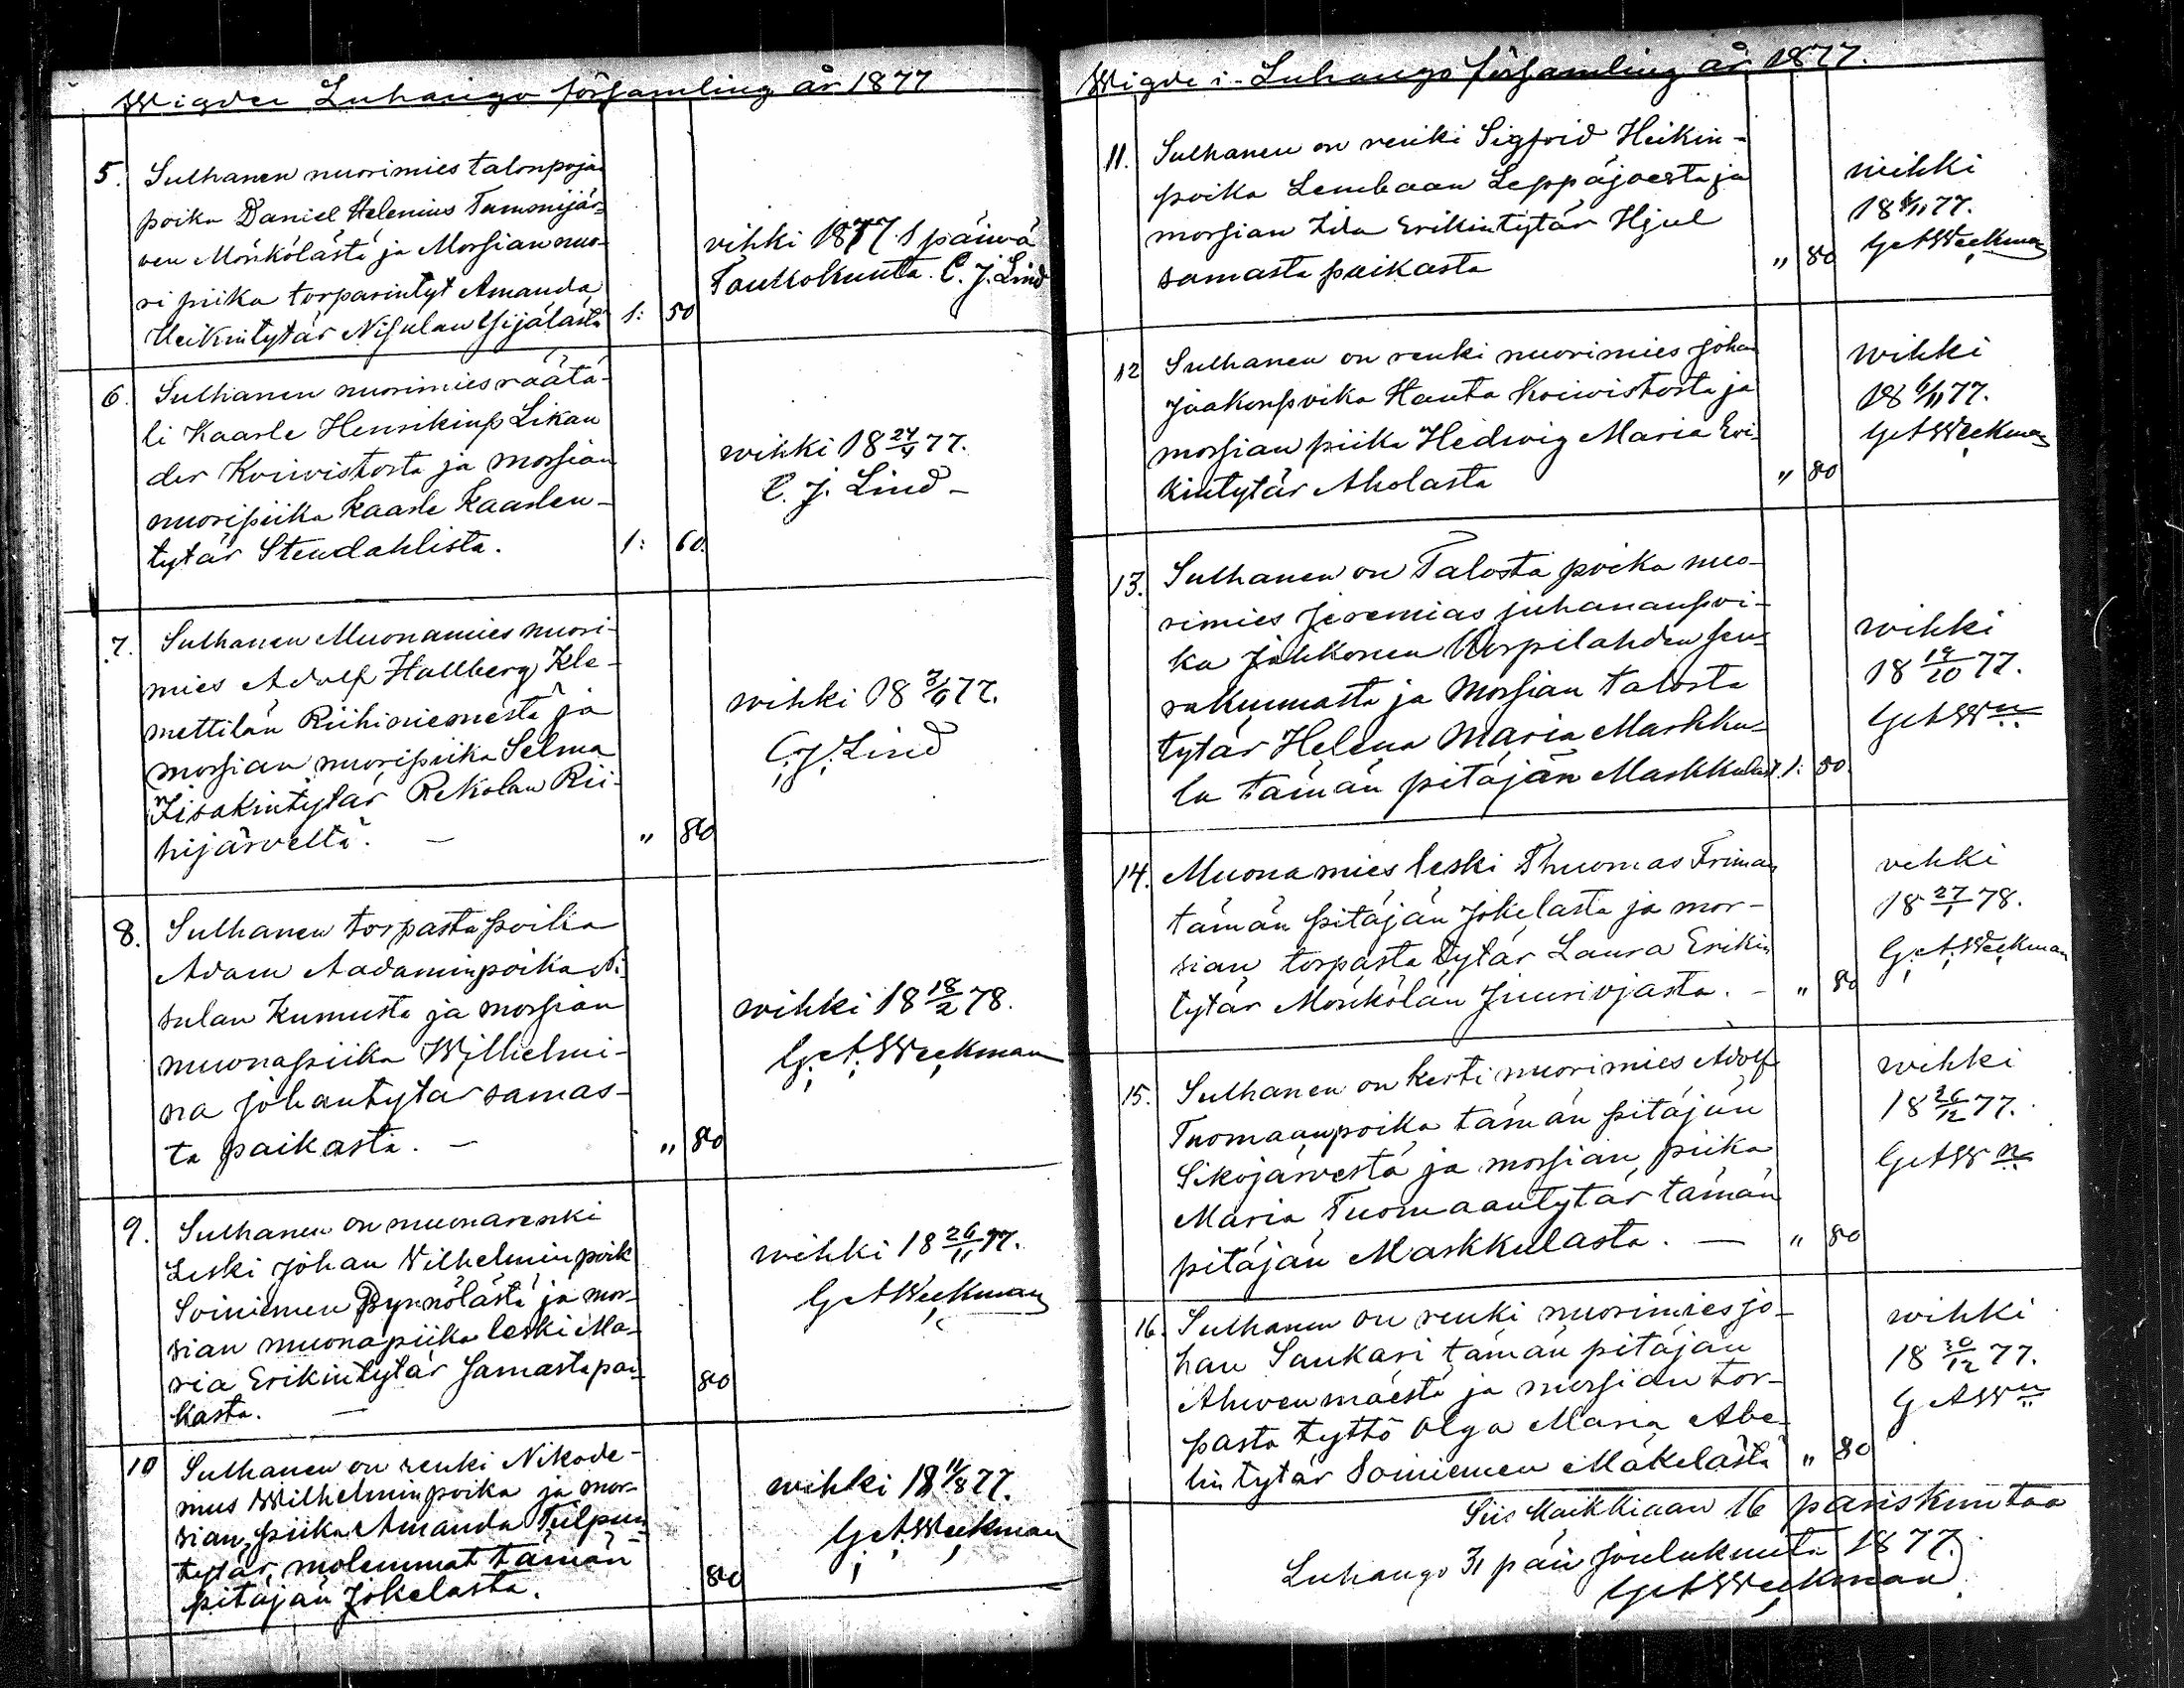 Wigde i Luhango församling år 1877
5. Sulhanen nuorimies talonpojan
poika Daniel Helenius Tammijär-
ven Mönkölästä ja Morsian nuo-
ri piika torparintyt Amanda
Heikintytär Nisulan 1: 50
vihki 1877 1 päivä
Toukokuuta. C. J. Lind
6. Sulhanen nuorimies räätä-
li Kaarle Henrikinp Likan
der Koivistosta ja morsian
nuoripiika Kaarle Kaarlen-
tytär Stendahlista. 1: 60.
wihki 18 24/4 77.
C. J. Lind
7. Sulhanen Muonamies nuori-
mies Adolf Hallberg Kle-
mettilän Riihiniemestä ja
morsian nuoripiika Selma
Iisakintytär Rekolan Rii-
hijärveltä. — " 80
wihki 18 77.
C. J. Lind
8. Sulhanen torpasta poika
Adam Aadaminpoika Ni-
sulan Kumusta ja morsian
muonapiika Wilhelmi-
na Johantytär samas-
ta paikasta. — " 80
wihki 18 18/2 78.
G. A. Weckman
9. Sulhanen on muonarenki
Leski Johan Vilhelmin poik
Soiniemen Pynnölästä ja mor-
sian muonapiika leski Ma-
ria Erikintytär samasta pai-
kasta. — 80
wihki 18 26/11 77.
G A Weckman
10 Sulhanen on renki Nikode-
mus Wilhelminpoika ja mor-
sian, piika Amanda
tytär, molemmat tämän
pitäjän Jokelasta. 80
wihki 18 11/8 77.
G. A. Weckman
Wigde i Luhango församling år 1877.
11. Sulhanen on renki Sigfrid Heikin-
poika Lembaan Leppäjoesta ja
morsian Ida Erikintytär Hjul
samasta paikasta " 80
wihki
18 77.
G A Weckman
12 Sulhanen on renki nuorimies Johan
Jaakonpoika Hanta Koivistosta ja
morsian piika Hedwig Maria Eri-
kintytär Aholasta " 80
wihki
18 6/11 77.
G A Weckman
13. Sulhanen on Talosta poika nuo-
rimies Jeremias Juhananpoi-
ka Jokkonen Korpilahden seu-
rakunnasta ja Morsian talosta
tytär Helena Maria Markku-
la tämän pitäjän Markkulast. 1: 80.
wihki
18 19/10 77.
G A W n
14. Muonamies leski Thuomas Friman
tämän pitäjän Jokelasta ja mor-
sian torpasta tytär Laura Erikin
tytär Mönkölän Juuriojasta. — " 80
vihki
18 27/1 78.
G. A. Weckman
15. Sulhanen on kesti nuorimies Adolf
Tuomaanpoika tämän pitäjän
Sikojärvestä ja morsian piika
Maria Tuomaantytär tämän
pitäjän Markkulasta. — " 80
wihki
18 26/12 77.
G A W n
16. Sulhanen on renki nuorimies Jo-
han Sankari tämän pitäjän
Ahvenmäestä ja morsian tor-
pasta tyttö Olga Maria Abe-
lin tytär Soiniemen Mäkelästä " 80
wihki
18 30/12 77.
G A W n
Siis Kaikkiaan 16 pariskuntaa
Luhango 31 päi Joulukuuta 1877.
G A Weckman